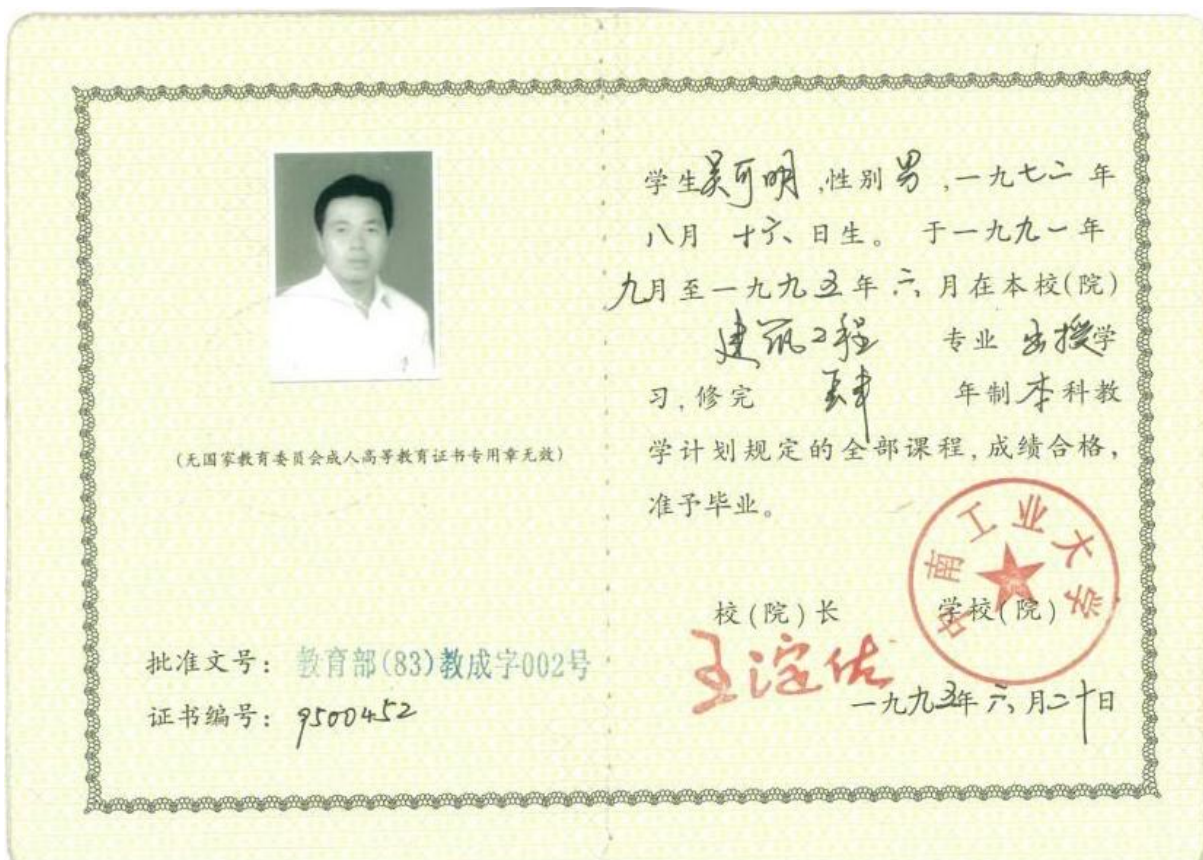 (无国家教育委员会成人高等教育证书专用章无效)
批准文号: 教育部(83)教成字002号
证书编号: 9500452
学生吴可明,性别男,一九七二年
八月十六日生。于一九九一年
九月至一九九五年六月在本校(院)
建筑工程 专业 函授学
习,修完 肆 年制本科教
学计划规定的全部课程,成绩合格,
准予毕业。
中南工业大学
校(院)长 学校(院)
王淀佐
一九九五年六月二十日